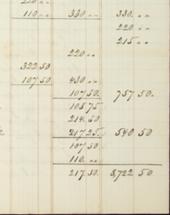 110.. 330.. 330..
220..
215..
220..
322.50
107.50 430..
107.50. 757 50.
105.75
214.50
217.25. 540 50
107.50
110..
217.50. 8,722 50